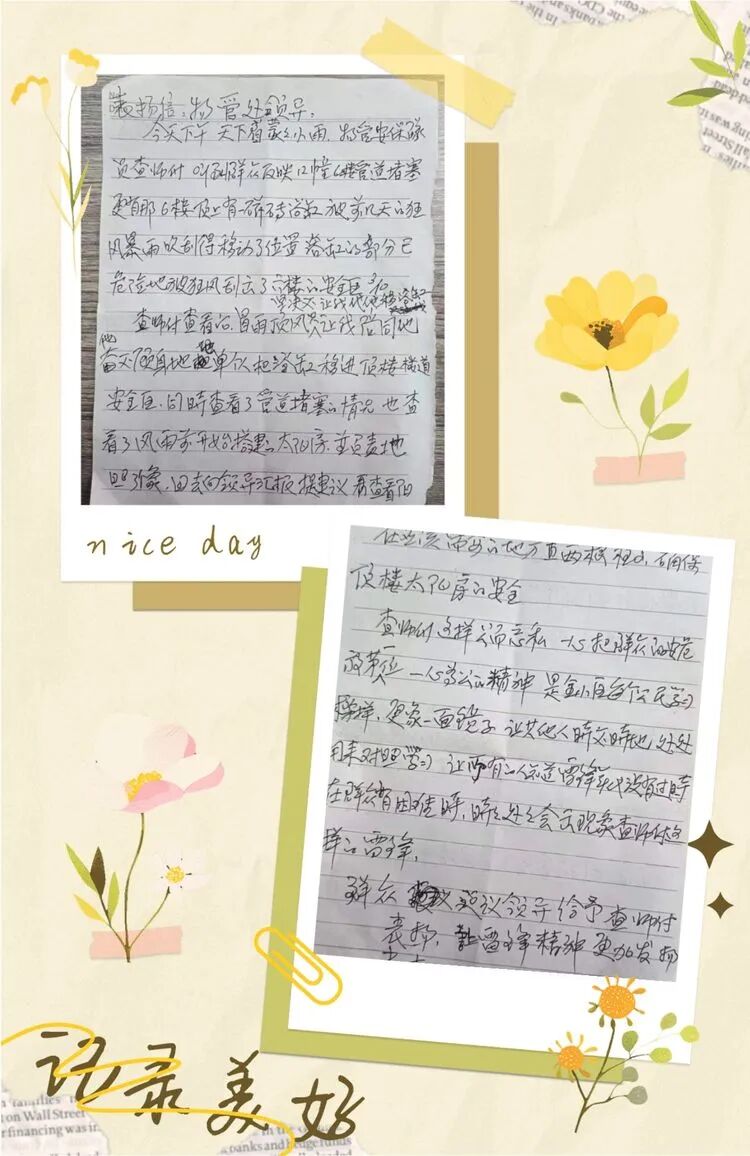 表扬信: 物管处领导:
今天下午 天下着蒙蒙小雨, 物管安保队
员查师付 听到群众反映12幢6楼管道堵塞
更有那6楼顶上有碎砖浴缸被前几天的狂
风暴雨吹刮得移动了位置 浴缸的部分已
危险地被狂风刮出了六楼的安全区
查师付查看后, 冒雨顶风 让我陪同他
他
奋不顾身地 单人把浴缸移进顶楼楼道
安全区, 同时查看了管道堵塞的情况 也查
看了风雨前开始搭建的太阳房, 并负责地
照了象, 回去向领导汇报 提建议 看查看阳
nice day
顶楼太阳房的安全
查师付这样公而忘私 一心把群众的安危
放第一位 一心为公的精神 是全小区每个公民学习
榜样, 更象一面镜子 让其他人时不时地 处处
用来对照学习 让所有的人知道雷锋年代没有过时
在群众有困难时, 时时处处会出现象查师付这
样的雷锋,
群众 建议领导给予查师付
表扬, 让雷锋精神更加发扬
记录美好
Wall Street
in the
on Wall Street
financing was in
banks and hedge funds